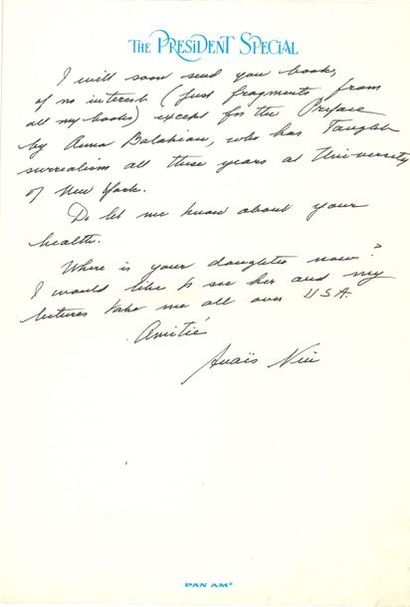 THE PRESIDENT SPECIAL
I will soon send you book,
of no interest (just fragments from
all my books) except for the Preface
by Anna Balakian, who has taught
surrealism all these years at University
of New York.
Do let me know about your
health.
Where is your daughter now?
I would like to see her and my
lectures take me all over USA.
Amitié
Anaïs Nin
PAN AM